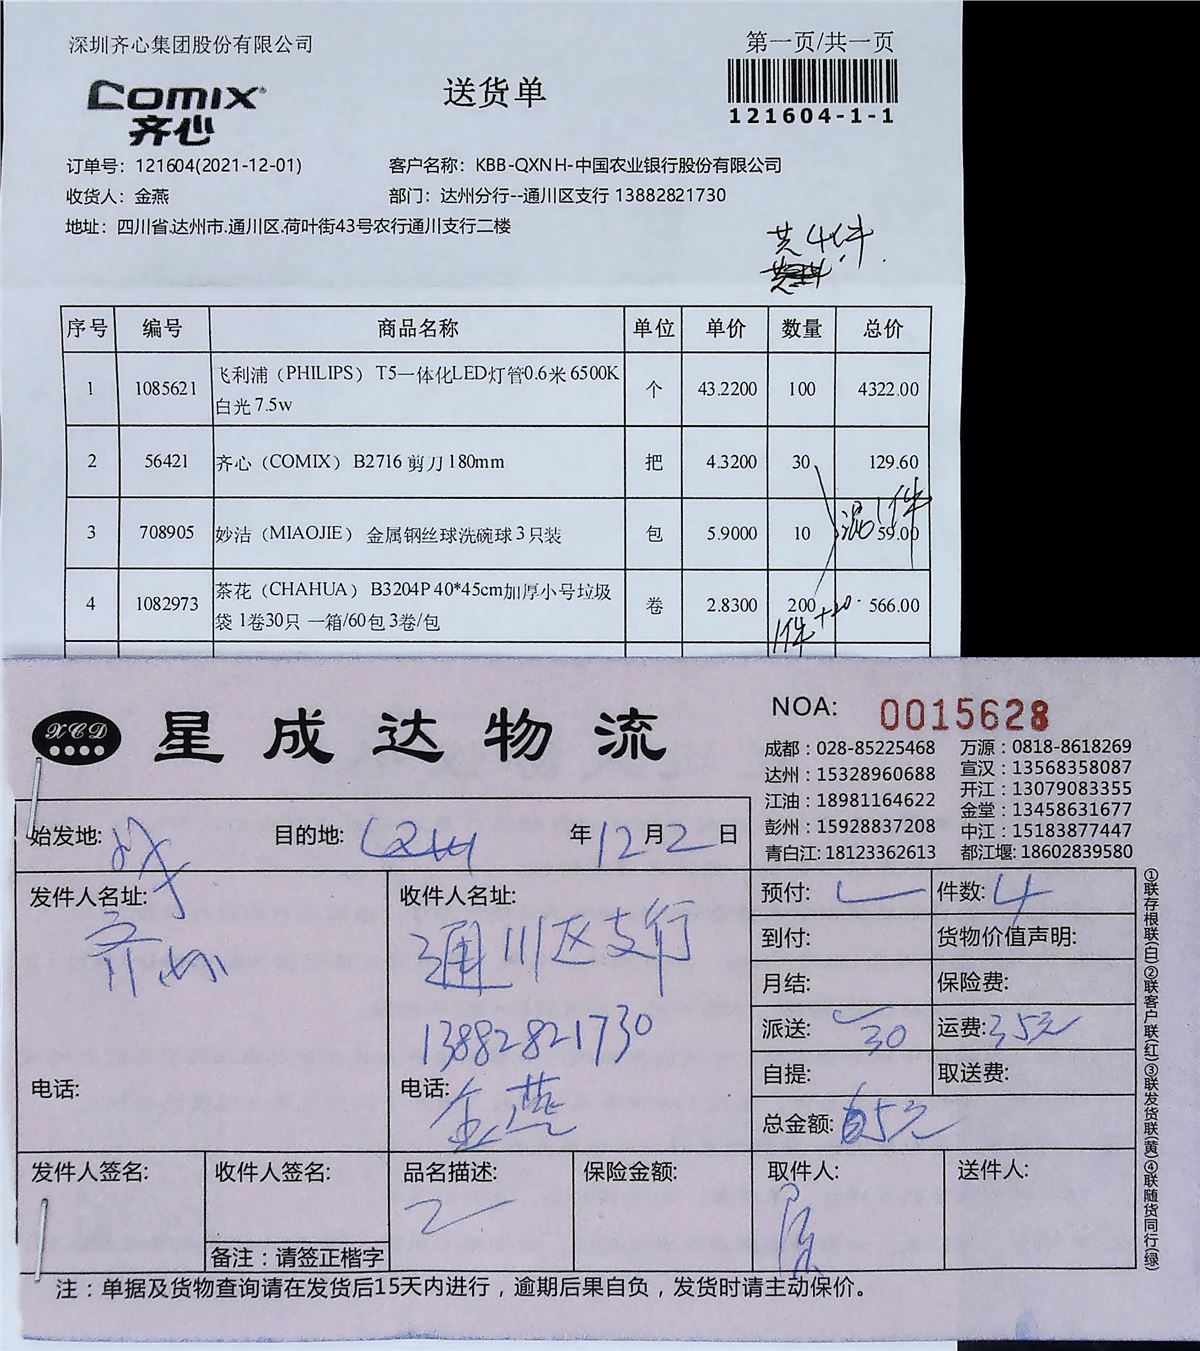 深圳齐心集团股份有限公司
第一页/共一页
COMIX
齐心
送货单
121604-1-1
订单号：121604(2021-12-01)
客户名称：KBB-QXNH-中国农业银行股份有限公司
收货人：金燕
部门：达州分行--通川区支行 13882821730
地址：四川省.达州市.通川区.荷叶街43号农行通川支行二楼
共4件
序号 编号 商品名称 单位 单价 数量 总价
1 1085621 飞利浦（PHILIPS） T5一体化LED灯管0.6米 6500K 个 43.2200 100 4322.00
白光 7.5w
2 56421 齐心（COMIX） B2716 剪刀 180mm 把 4.3200 30 129.60
混1件
3 708905 妙洁（MIAOJIE） 金属钢丝球洗碗球 3只装 包 5.9000 10 59.00
4 1082973 茶花（CHAHUA） B3204P 40*45cm加厚小号垃圾 卷 2.8300 200 566.00
袋 1卷30只 一箱/60包 3卷/包
1件+20
XCD
星成达物流
NOA: 0015628
成都：028-85225468 万源：0818-8618269
达州：15328960688 宣汉：13568358087
江油：18981164622 开江：13079083355
彭州：15928837208 金堂：13458631677
青白江: 18123362613 中江：15183877447
都江堰: 18602839580
始发地: 目的地: 达州 年12月2日
发件人名址: 齐心
收件人名址: 通川区支行
13882821730
电话:
电话: 金燕
预付: 件数: 4
到付: 货物价值声明:
月结: 保险费:
派送: 30 运费: 35元
自提: 取送费:
总金额: 65元
发件人签名: 收件人签名: 品名描述: 保险金额: 取件人: 送件人:
备注：请签正楷字
注：单据及货物查询请在发货后15天内进行，逾期后果自负，发货时请主动保价。
①联存根联(白)②联客户联(红)③联发货联(黄)④联随货同行(绿)